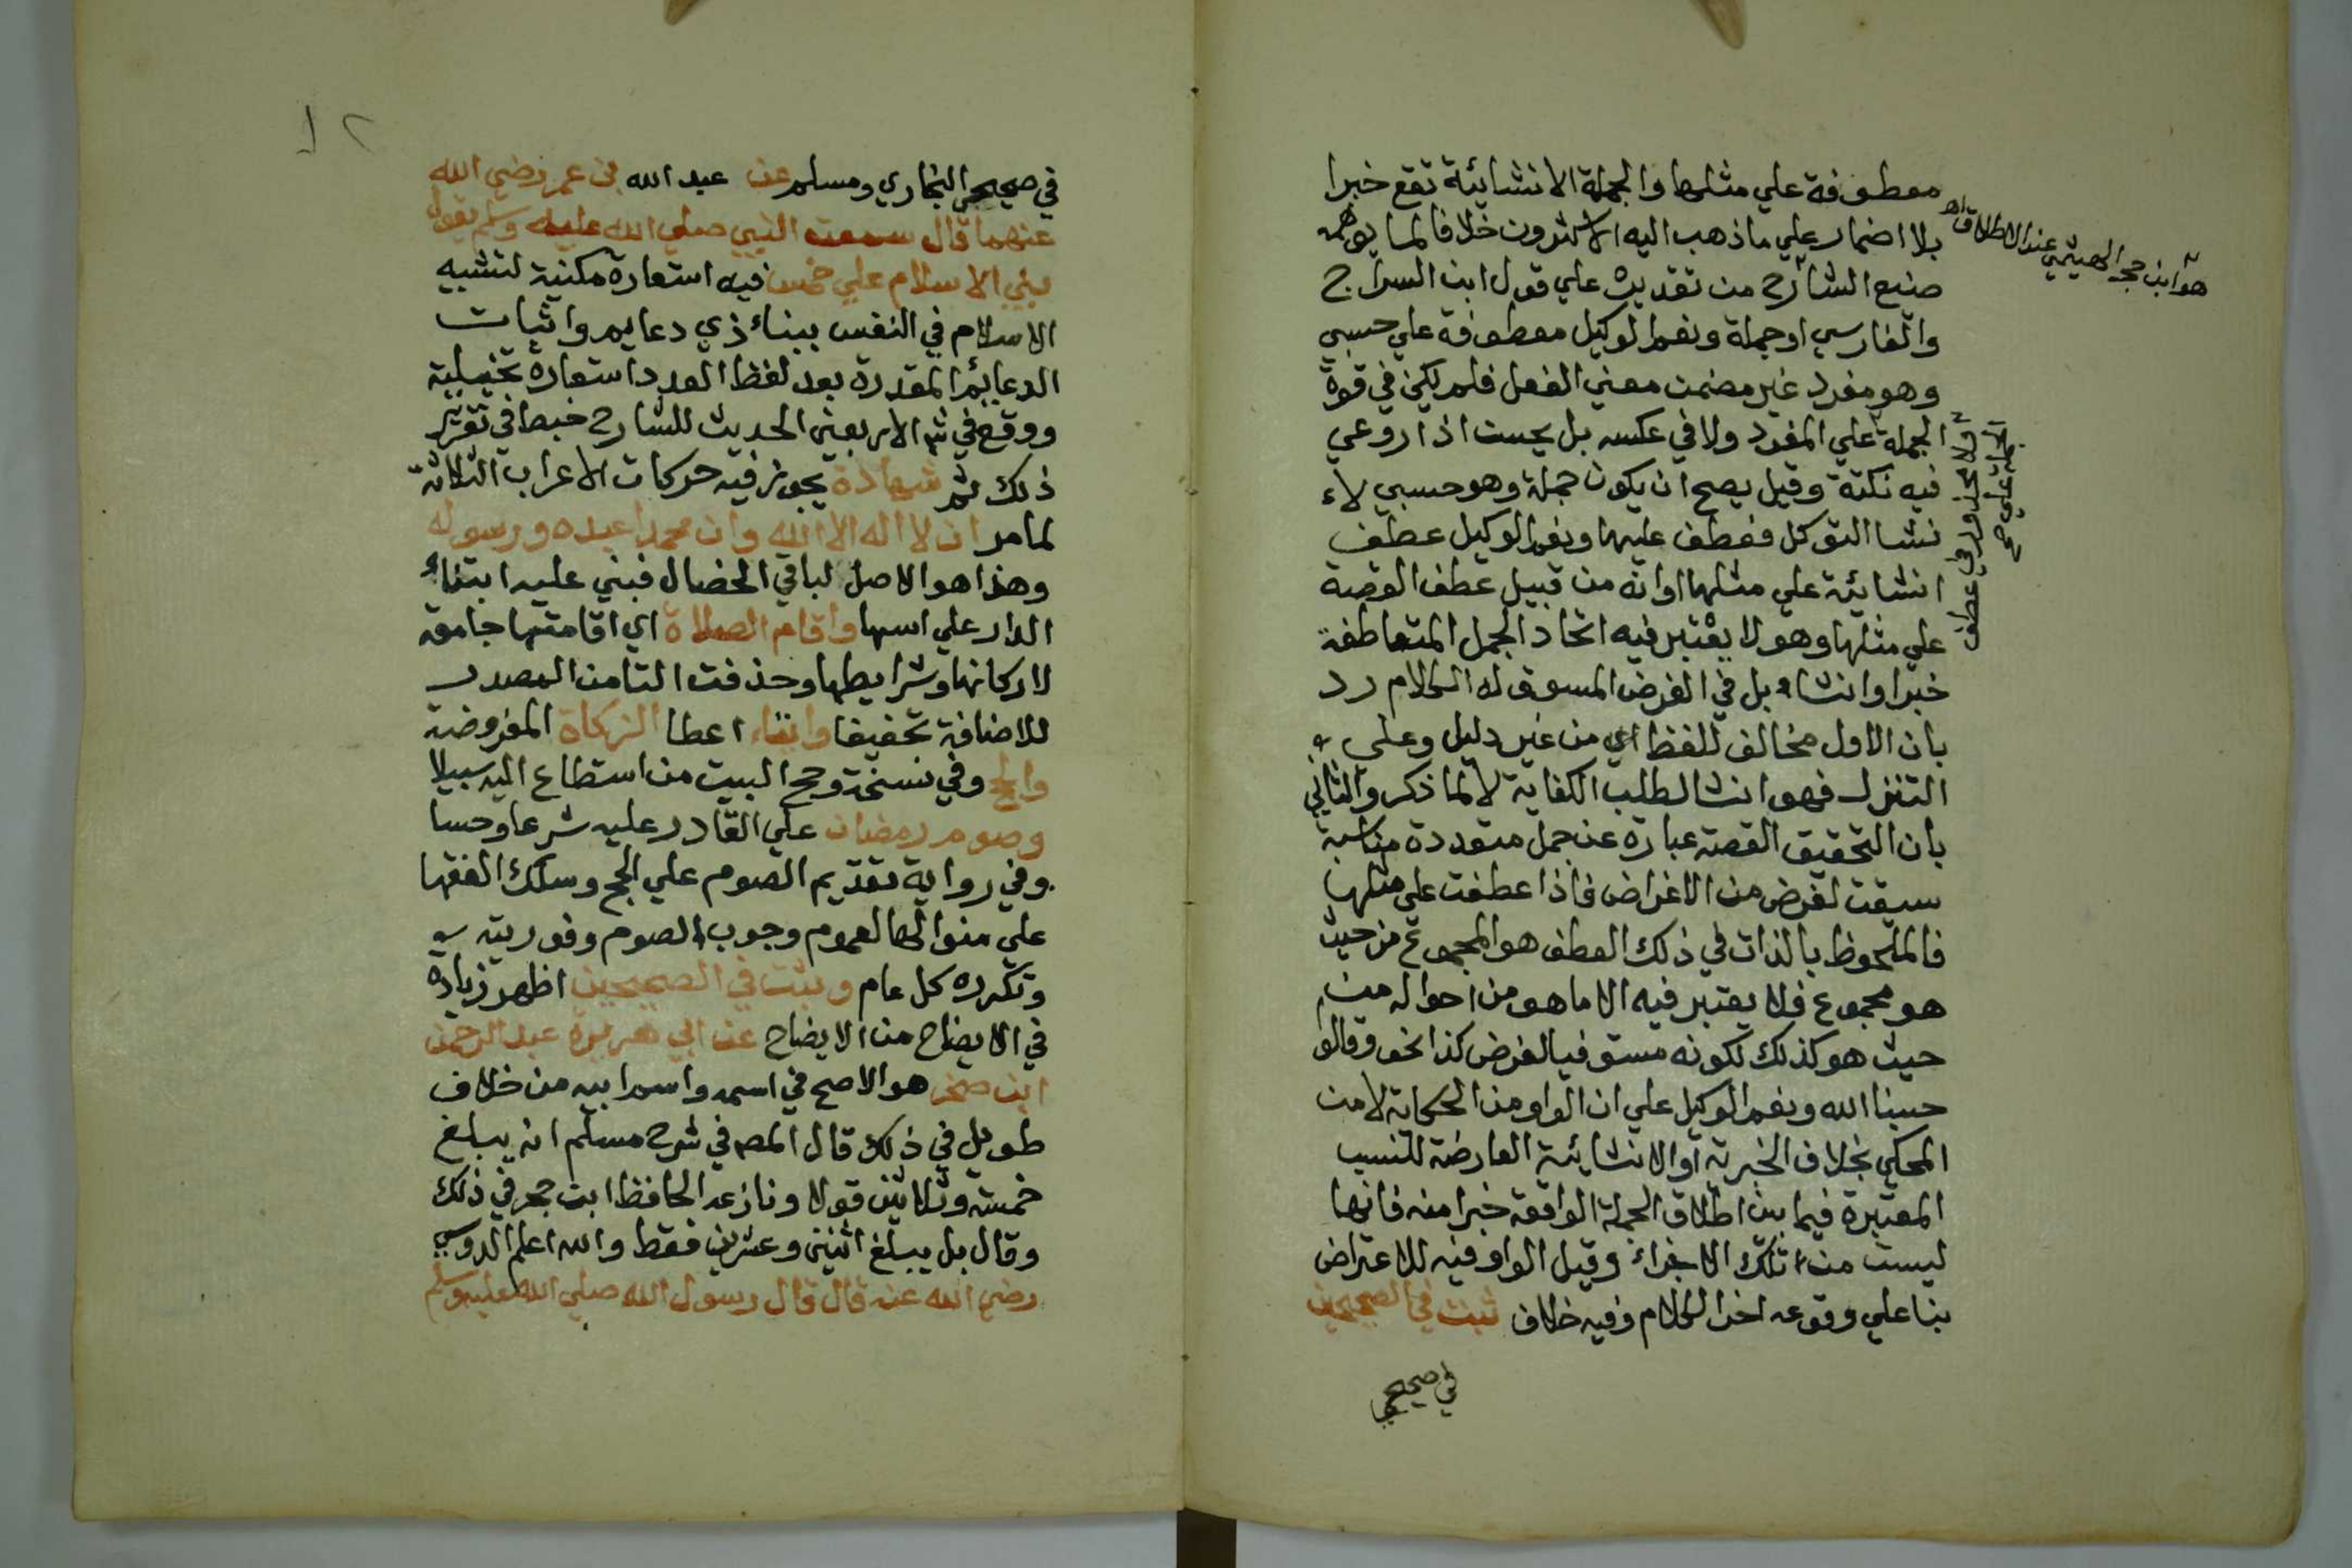 معطوفة علي مثلها والجملة الانشائية تقع خبرا
بلا اضمار علي ما ذهب اليه الاكثرون خلافا لما يوهمه
صنيع الشارح من تقديره علي قول ابن السراج
والفارسي او جملة ونعم الوكيل معطوفة علي حسبي
وهو مفرد غير مضمن معني الفعل فلم يكن في قوة
الجملة علي المفرد ولا في عكسه بل يحسن اذا روعي
فيه نكتة وقيل يصح ان يكون جملة وهو حسبي لاء
نشا التوكل فعطف عليها ونعم الوكيل عطف
انشائية علي مثلها او انه من قبيل عطف القصة
علي مثلها وهو لا يعتبر فيه اتحاد الجمل المتعاطفة
خبرا وانشاء بل في الغرض المسوق له الكلام رد
بان الاول مخالف للفظ اي من غير دليل وعلي
التنزل فهو انشا لطلب الكفاية لا لما ذكر والثاني
بان التحقيق القصة عبارة عن جمل متعددة متناسبة
سيقت لغرض من الاغراض فاذا عطفت علي مثلها
فالملحوظ بالذات في ذلك العطف هو المجموع من حيث
هو مجموع فلا يعتبر فيه الا ما هو من احواله من
حيث هو كذلك لكونه مستوفيا لغرض كذا نحو وقالوا
حسبنا الله ونعم الوكيل علي ان الواو من الحكاية لا من
المحكي بخلاف الخبرية او الانشائية العارضة للنسب
المعتبرة فيما بين اطلاق الجملة الواقعة خبرا منه فانها
ليست من تلك الاجزاء وقيل الواو فيه للاعتراض
بنا علي وقوعه اخر الكلام وفيه خلاف ثبت في الصحيحين
في صحيحي
هو ابن حجر الهيتمي عند الاطلاق اهـ
ولا محذور في عطف
الجملة علي صح
١٢
في صحيحي البخاري ومسلم عن عبد الله بن عمر رضي الله
عنهما قال سمعت النبي صلي الله عليه وسلم يقول
بني الاسلام علي خمس فيه استعارة مكنية لتشبيه
الاسلام في النفس ببناء ذي دعايم واثبات
الدعايم المقدرة بعد لفظ العدد استعارة تخييلية
ووقع في شر الاربعين الحديث للشارح خبط في تقرير
ذلك ثم شهادة يجوز فيه حركات الاعراب الثلاثة
لما مر ان لا اله الا الله وان محمدا عبده ورسوله
وهذا هو الاصل لباقي الخصال فبني عليه ابتناء
الدار علي اسها واقام الصلاة اي اقامتها جامعة
لاركانها وشرايطها وحذفت التا من المصدر
للاضافة تخفيفا وايتاء اعطا الزكاة المفروضة
والحج وفي نسخة وحج البيت من استطاع اليه سبيلا
وصوم رمضان علي القادر عليه شرعا وحسا
وفي رواية تقديم الصوم علي الحج وسلك الفقها
علي منوالها لعموم وجوب الصوم وفوريته
وتكرره كل عام وثبت في الصحيحين اظهر زيادة
في الايضاح من الايضاح عن ابي هريرة عبد الرحمن
ابن صخر هو الاصح في اسمه واسم ابيه من خلاف
طويل في ذلك قال المصـ في شرح مسلم انه يبلغ
خمسة وثلاثين قولا ونازعه الحافظ ابن حجر في ذلك
وقال بل يبلغ اثنين وعشرين فقط والله اعلم الدوسي
رضي الله عنه قال قال رسول الله صلي الله عليه وسلم